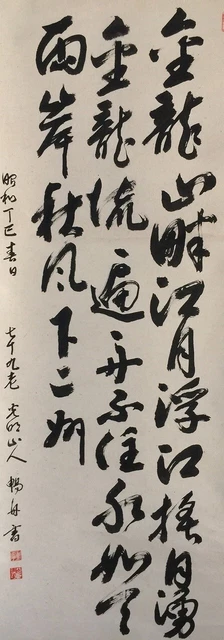 金龍山畔江月浮江揺月湧
金龍流遍舟不住水如天
兩岸秋風下二州
昭和丁巳春日
七十九老 山人 暢舟書